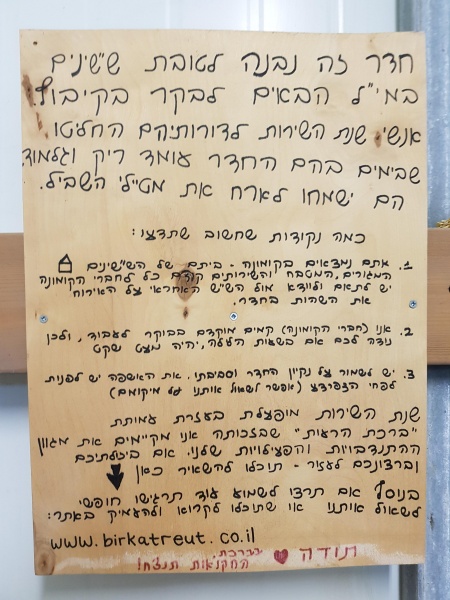 חדר זה נבנה לטובת ש"שינים
במי"ל הבאים לבקר בקיבוץ.
אנשי שנת השירות לדורותיהם החליטו
שבימים בהם החדר עומד ריק וגלמוד
הם ישמחו לארח את מטיילי השביל.
כמה נקודות שחשוב שתדעו:
1. אתם נמצאים בקומונה - ביתם של הש"שינים
המגורים, המטבח והשירותים קודם כל לחברי הקומונה
יש לתאם ולוודא מול הש"ש האחראי על האירוח
את השהות בחדר.
2. אנו (חברי הקומונה) קמים מוקדם בבוקר לעבוד, ולכן
נודה לכם אם בשעות הלילה, יהיה מעט שקט
3. יש לשמור על נקיון החדר וסביבתו. את האשפה יש לפנות
לפחי הצפרדע (אפשר לשאול אותנו על מיקומם)
שנת השירות מופעלת בעזרת עמותת
"ברכת הרעות" שבזכותה אנו מקיימים את מגוון
ההתנדבויות והפעילויות שלנו. אם ביכולתיכם
וברצונכם לעזור - תוכלו להשאיר כאן
בנוסף אם תרצו לשמוע עוד תרגישו חופשי
לשאול אותנו או שתוכלו לקרוא ולהעמיק באתר:
www.birkatreut.co.il
תודה ♥ בברכת
החקלאות תנצח!